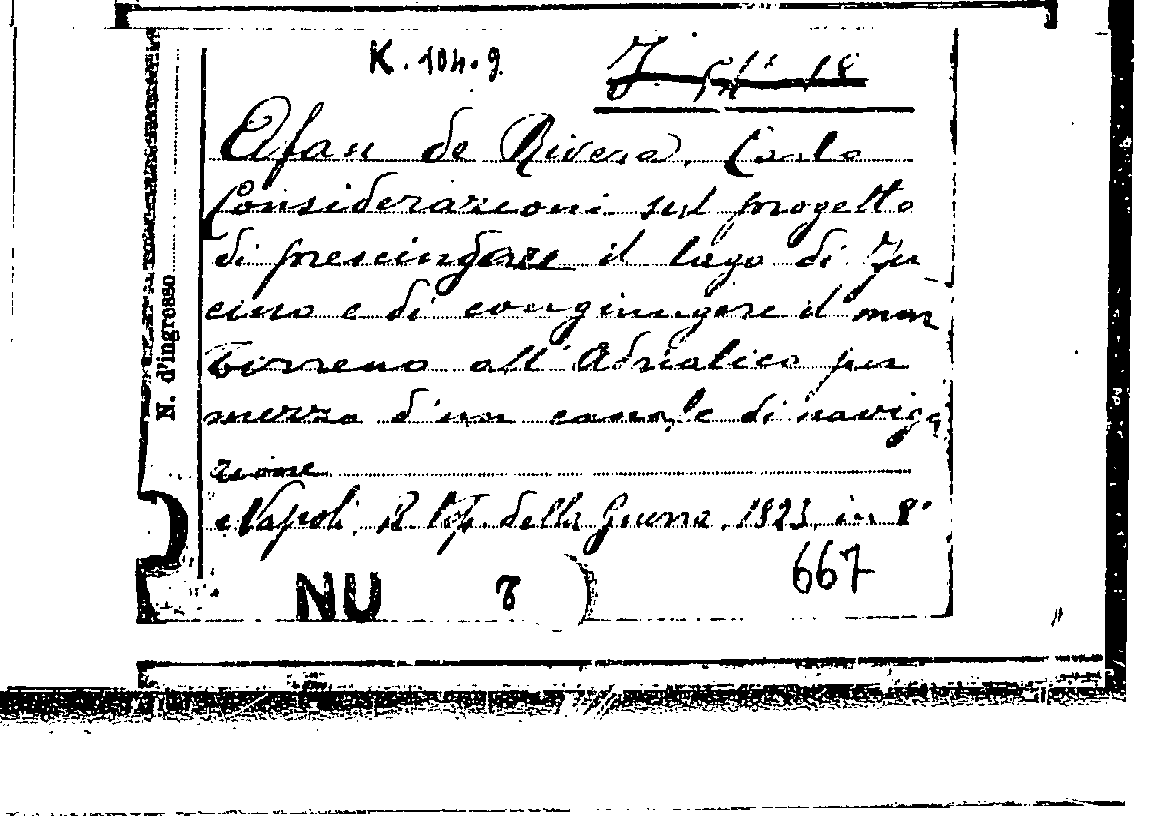 K. 104. 9.
Afan de Rivera, Carlo
Considerazioni sul progetto
di prescingere il lago di Fu
cino e di congiungere il mar
Tirreno all'Adriatico per
mezzo d'un canale di naviga
zione
Napoli, R. Tip. della Guerra, 1823, in 8°
667
NU
N. d'ingresso